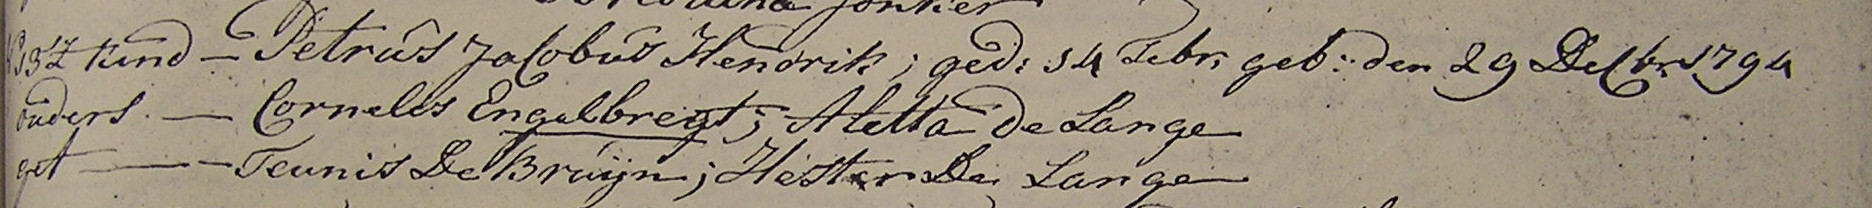 Jonker
No 37 kind — Petrus Jacobus Hendrik; ged: 14 Febr, geb: den 29 Decbr 1794
ouders — Corneles Engelbregt; Aletta de Lange
get — Teunis De Bruijn; Hester De Lange